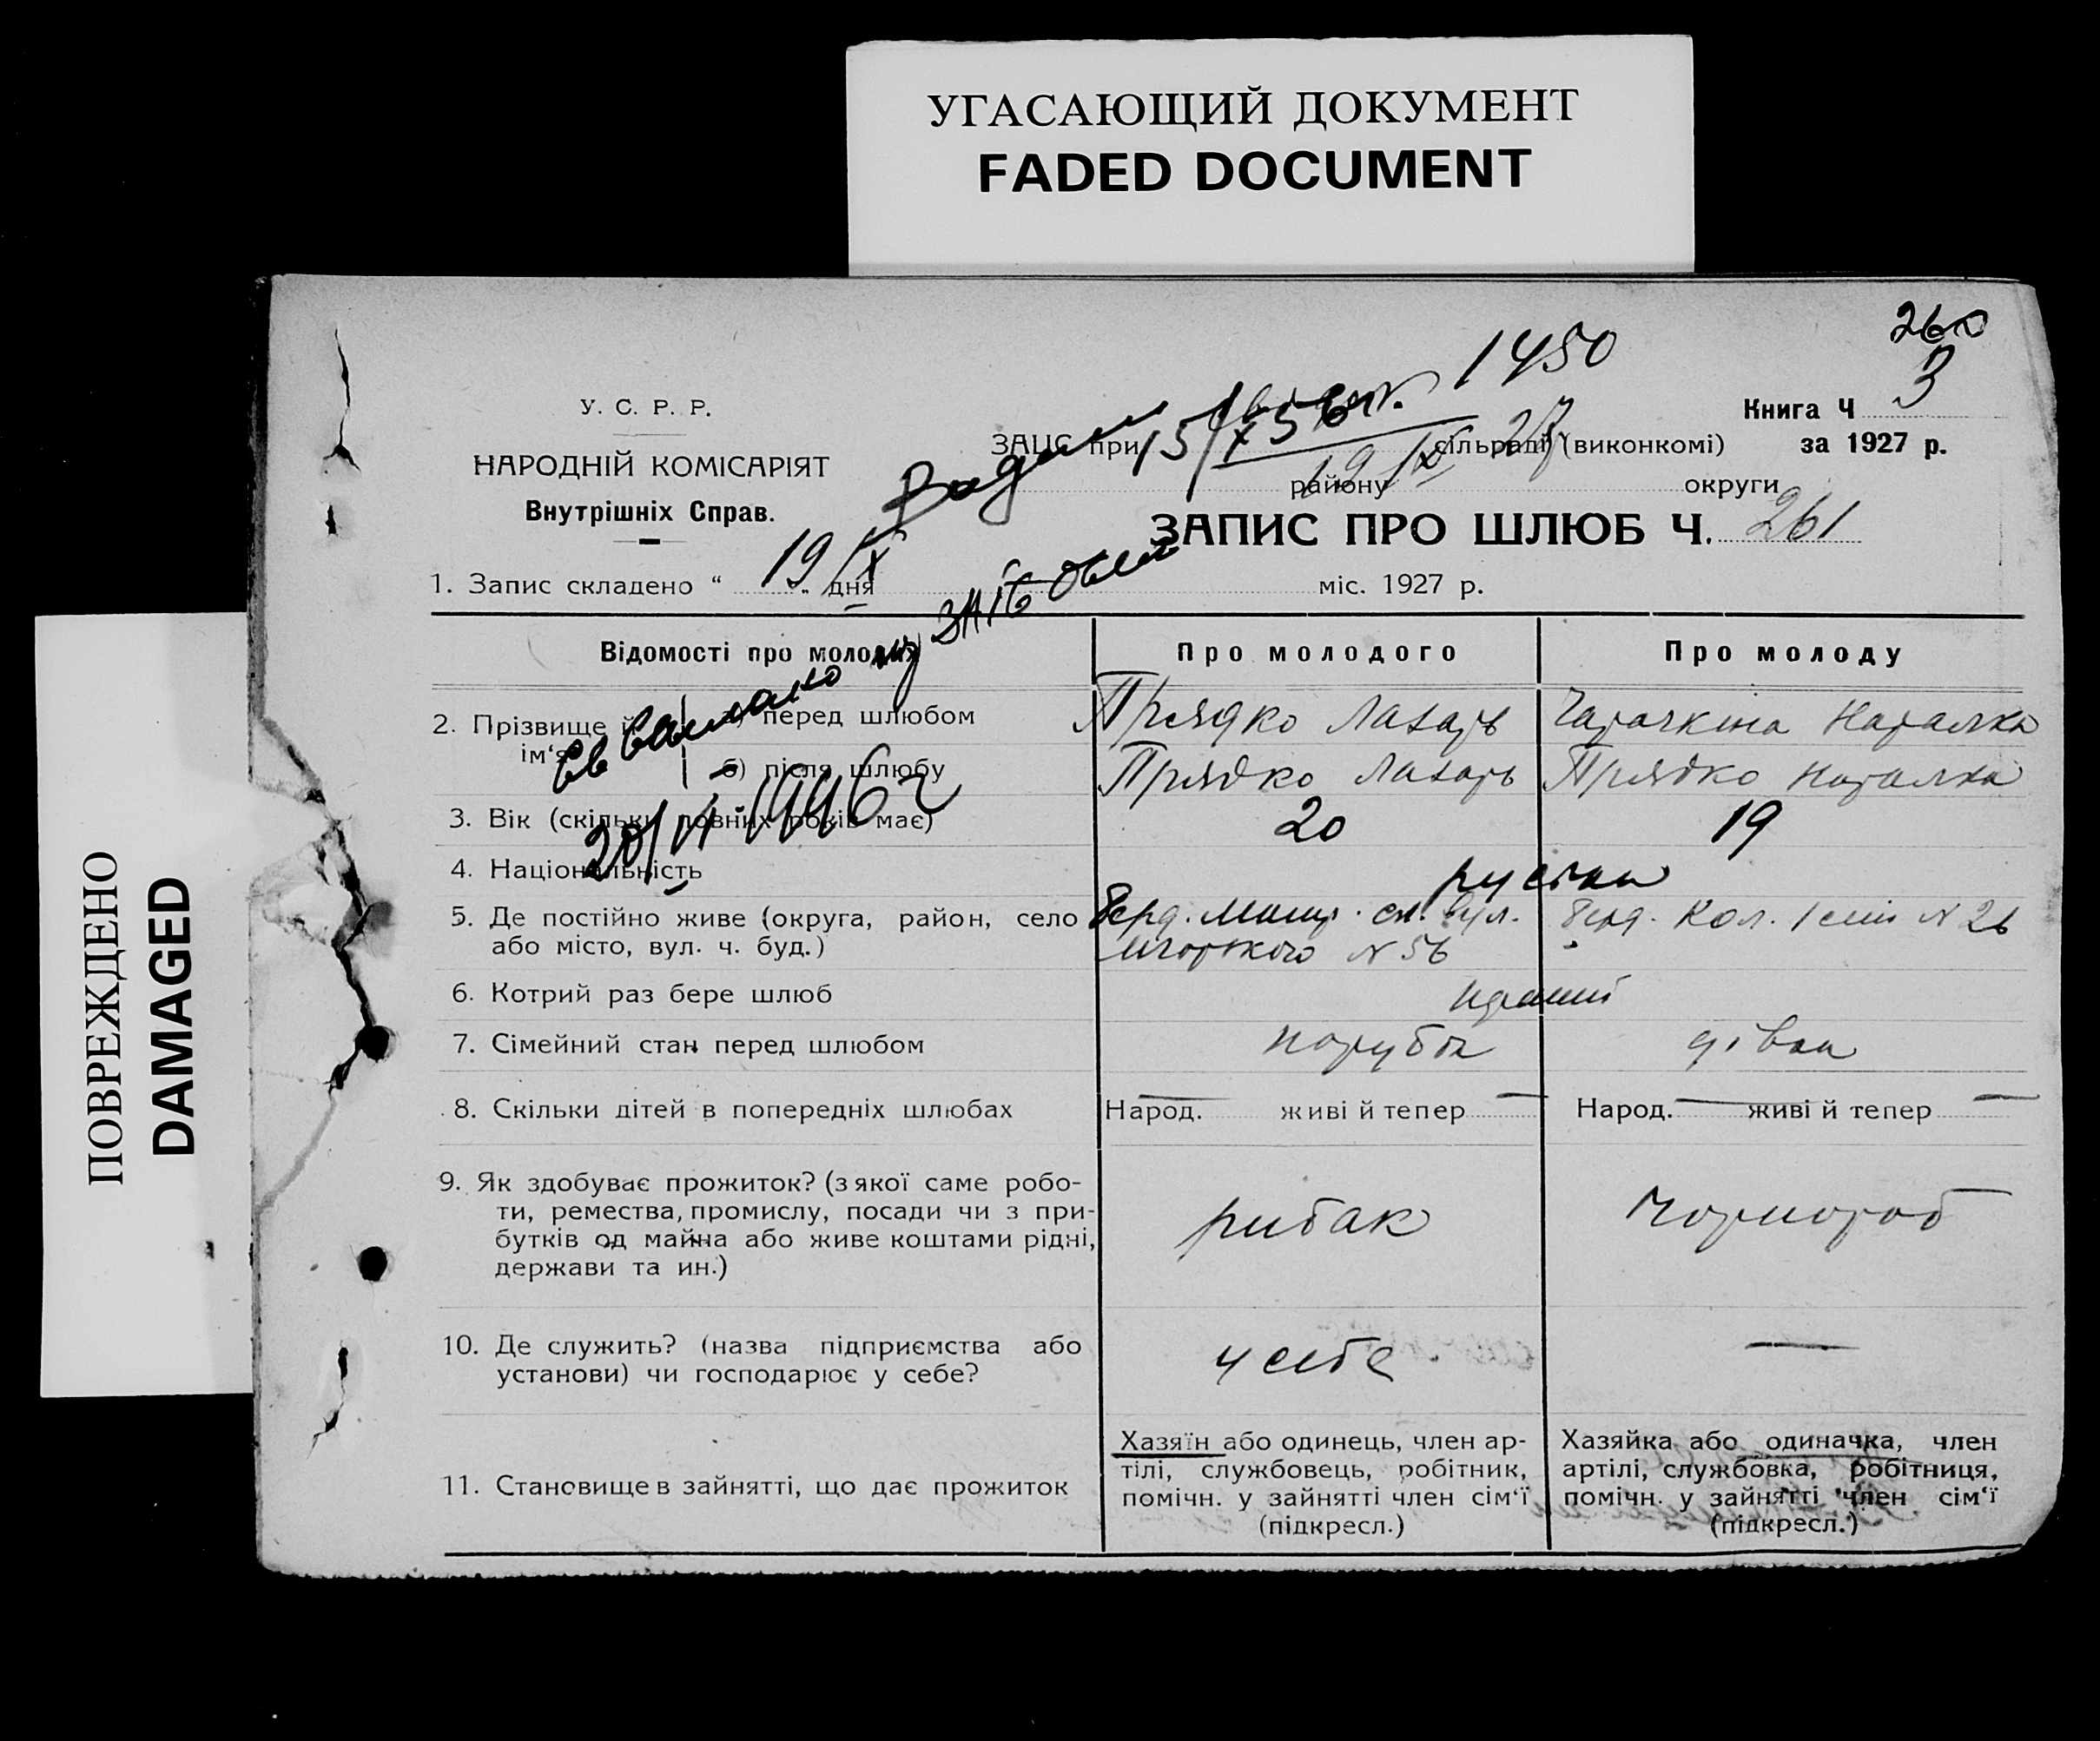 УГАСАЮЩИЙ ДОКУМЕНТ
FADED DOCUMENT
ПОВРЕЖДЕНО
DAMAGED
260
У. С. Р. Р.
НАРОДНІЙ КОМІСАРІЯТ
Внутрішніх Справ.
1450
Книга Ч 3
за 1927 р.
ЗАЦС при сільраді (виконкомі)
19/IX 27
району округи
ЗАПИС ПРО ШЛЮБ Ч. 261
1. Запис складено “ 19 „ дня IX міс. 1927 р.
Відомості про молодих
Про молодого
Про молоду
2. Прізвище й ім‘я
а) перед шлюбом
Прядко Лазарь
Наталка
б) після шлюбу
Прядко Лазарь
Прядко Наталка
3. Вік (скільки повних років має)
20
19
20/VI 1946 г
4. Національність
5. Де постійно живе (округа, район, село
або місто, вул. ч. буд.)
вул.
N 56
Кол. N 26
6. Котрий раз бере шлюб
перший
7. Сімейний стан перед шлюбом
парубок
дівка
8. Скільки дітей в попередніх шлюбах
Народ. — живі й тепер —
Народ. — живі й тепер —
9. Як здобуває прожиток? (з якої саме робо-
ти, ремества, промислу, посади чи з при-
бутків од майна або живе коштами рідні,
держави та ин.)
рибак
чорнороб
10. Де служить? (назва підприємства або
установи) чи господарює у себе?
у себе
—
11. Становище в зайнятті, що дає прожиток
Хазяїн або одинець, член ар-
тілі, службовець, робітник,
помічн. у зайнятті член сім‘ї
(підкресл.)
Хазяйка або одиначка, член
артілі, службовка, робітниця,
помічн. у зайнятті член сім‘ї
(підкресл.)